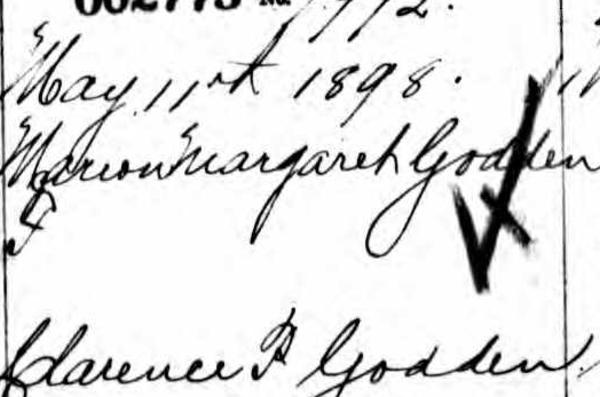 002773 No.
May 11st 1898.
Marion Margaret Godden
F
Clarence F Godden